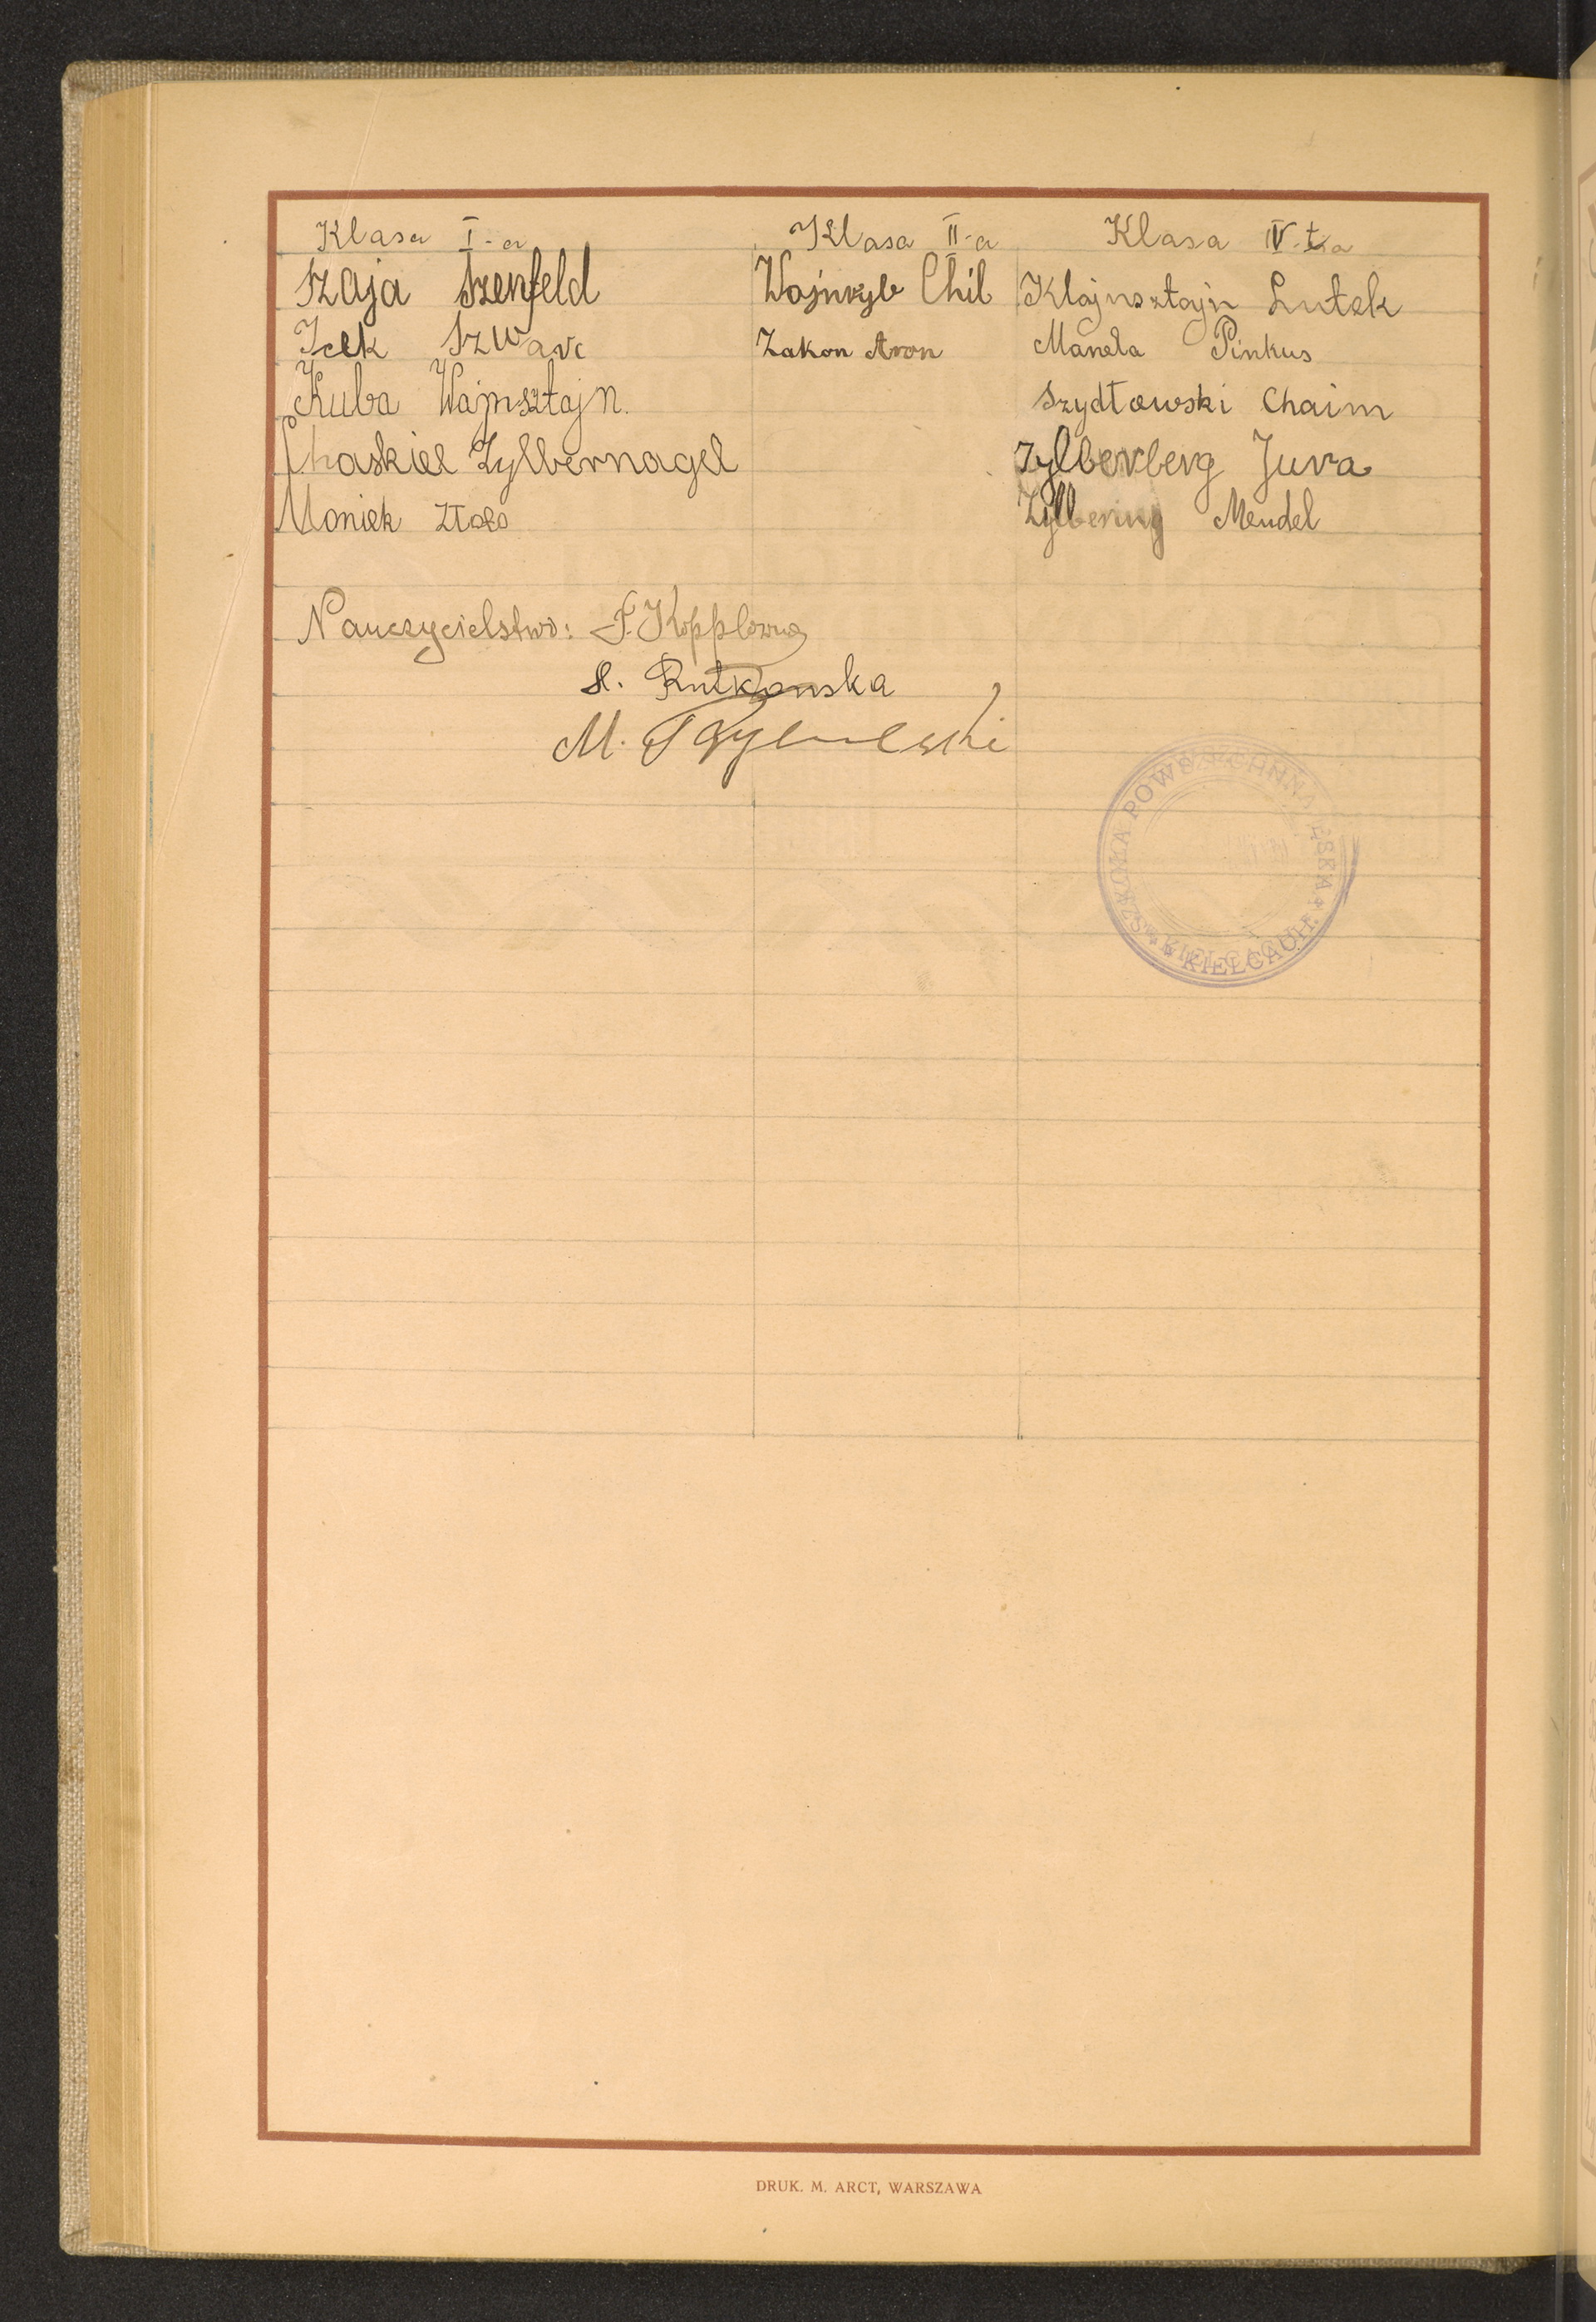 Klasa I-a
Szaja Szenfeld
Icek Szwarc
Kuba Wajnsztajn.
Chaskiel Zylbernagel
Moniek Złoto
Klasa II-a
Wajnryb Chil
Zakon Aron
Klasa IV-ta
Klajnsztajn Lutek
Manela Pinkus
Szydłowski Chaim
Zylberberg Jura
Zylbering Mendel
Nauczycielstwo: F. Kopplowna
S. Rutkowska
M.
SZKOŁA POWSZECHNA
KIELCACH
DRUK. M. ARCT, WARSZAWA